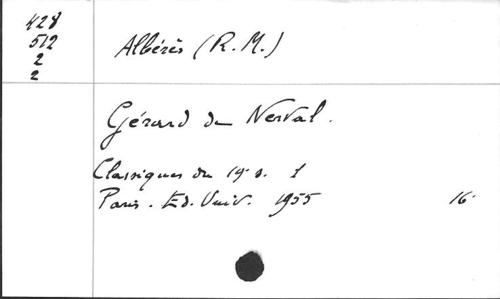 428
512
2
2
Albérès (R.M.)
Gérard de Nerval.
Classiques du 19e s. 1
Paris. Ed. Univ. 1955 16°